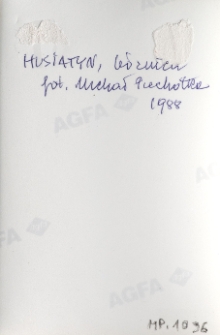 HUSIATYN, bóżnica
fot. Michał Piechotka
1988
AGFA
AGFA
AGFA
MP. 1096